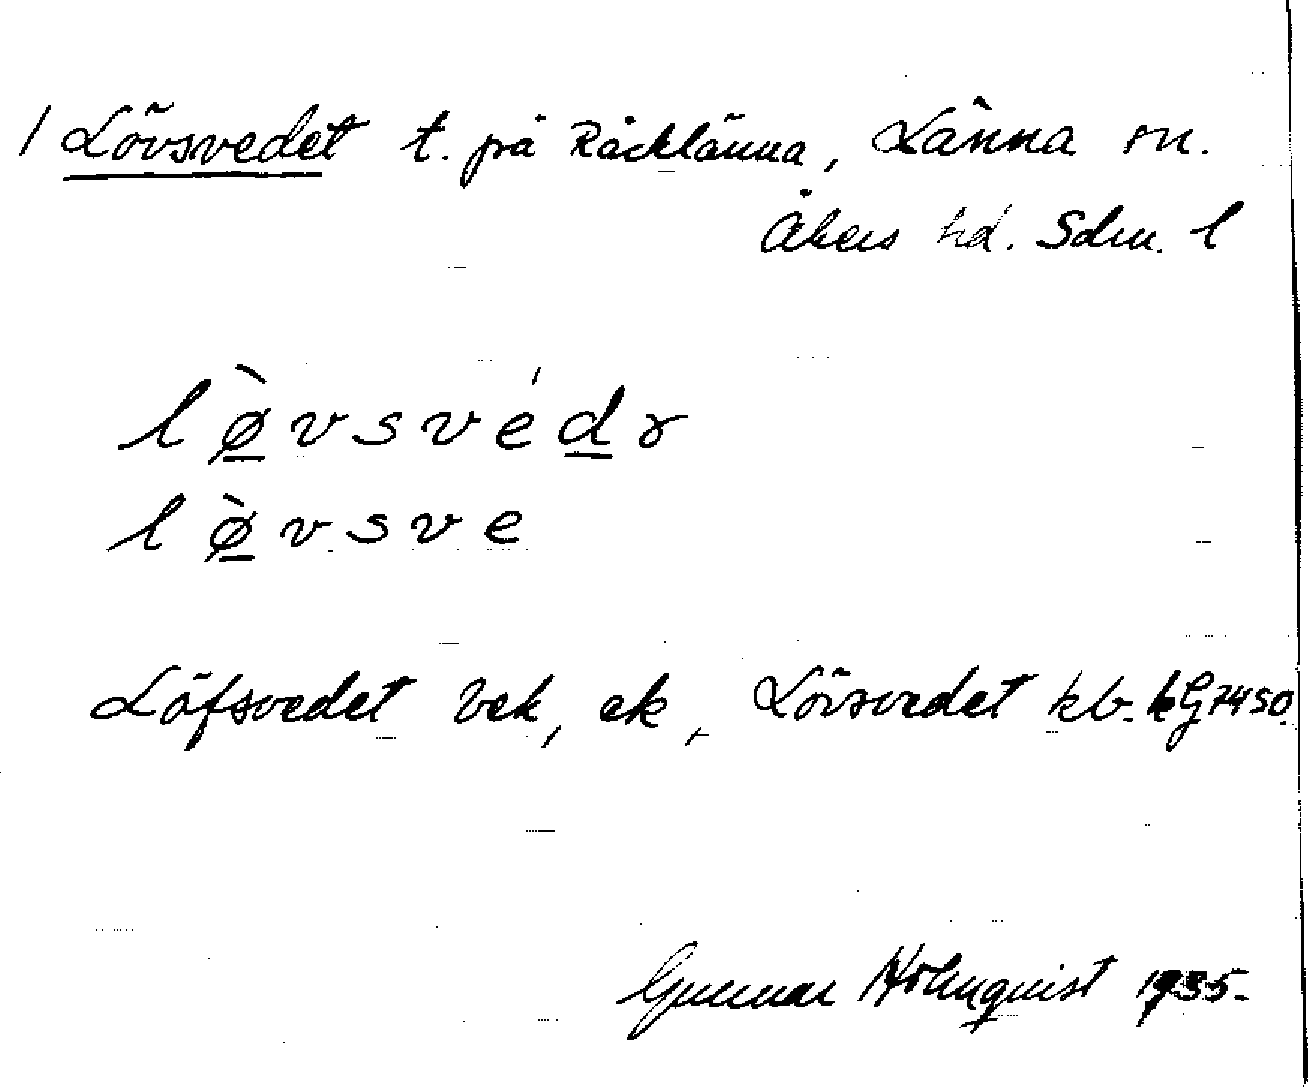 / Lövsvedet t. på Räcklänna, Länna sn.
Åkers hd. Sdm. l
lø̀vsvédr
lø̀vsve
Löfsvedet bek, ek, Lövsvedet kb. hG 7450
Gunnar Holmquist 1935.